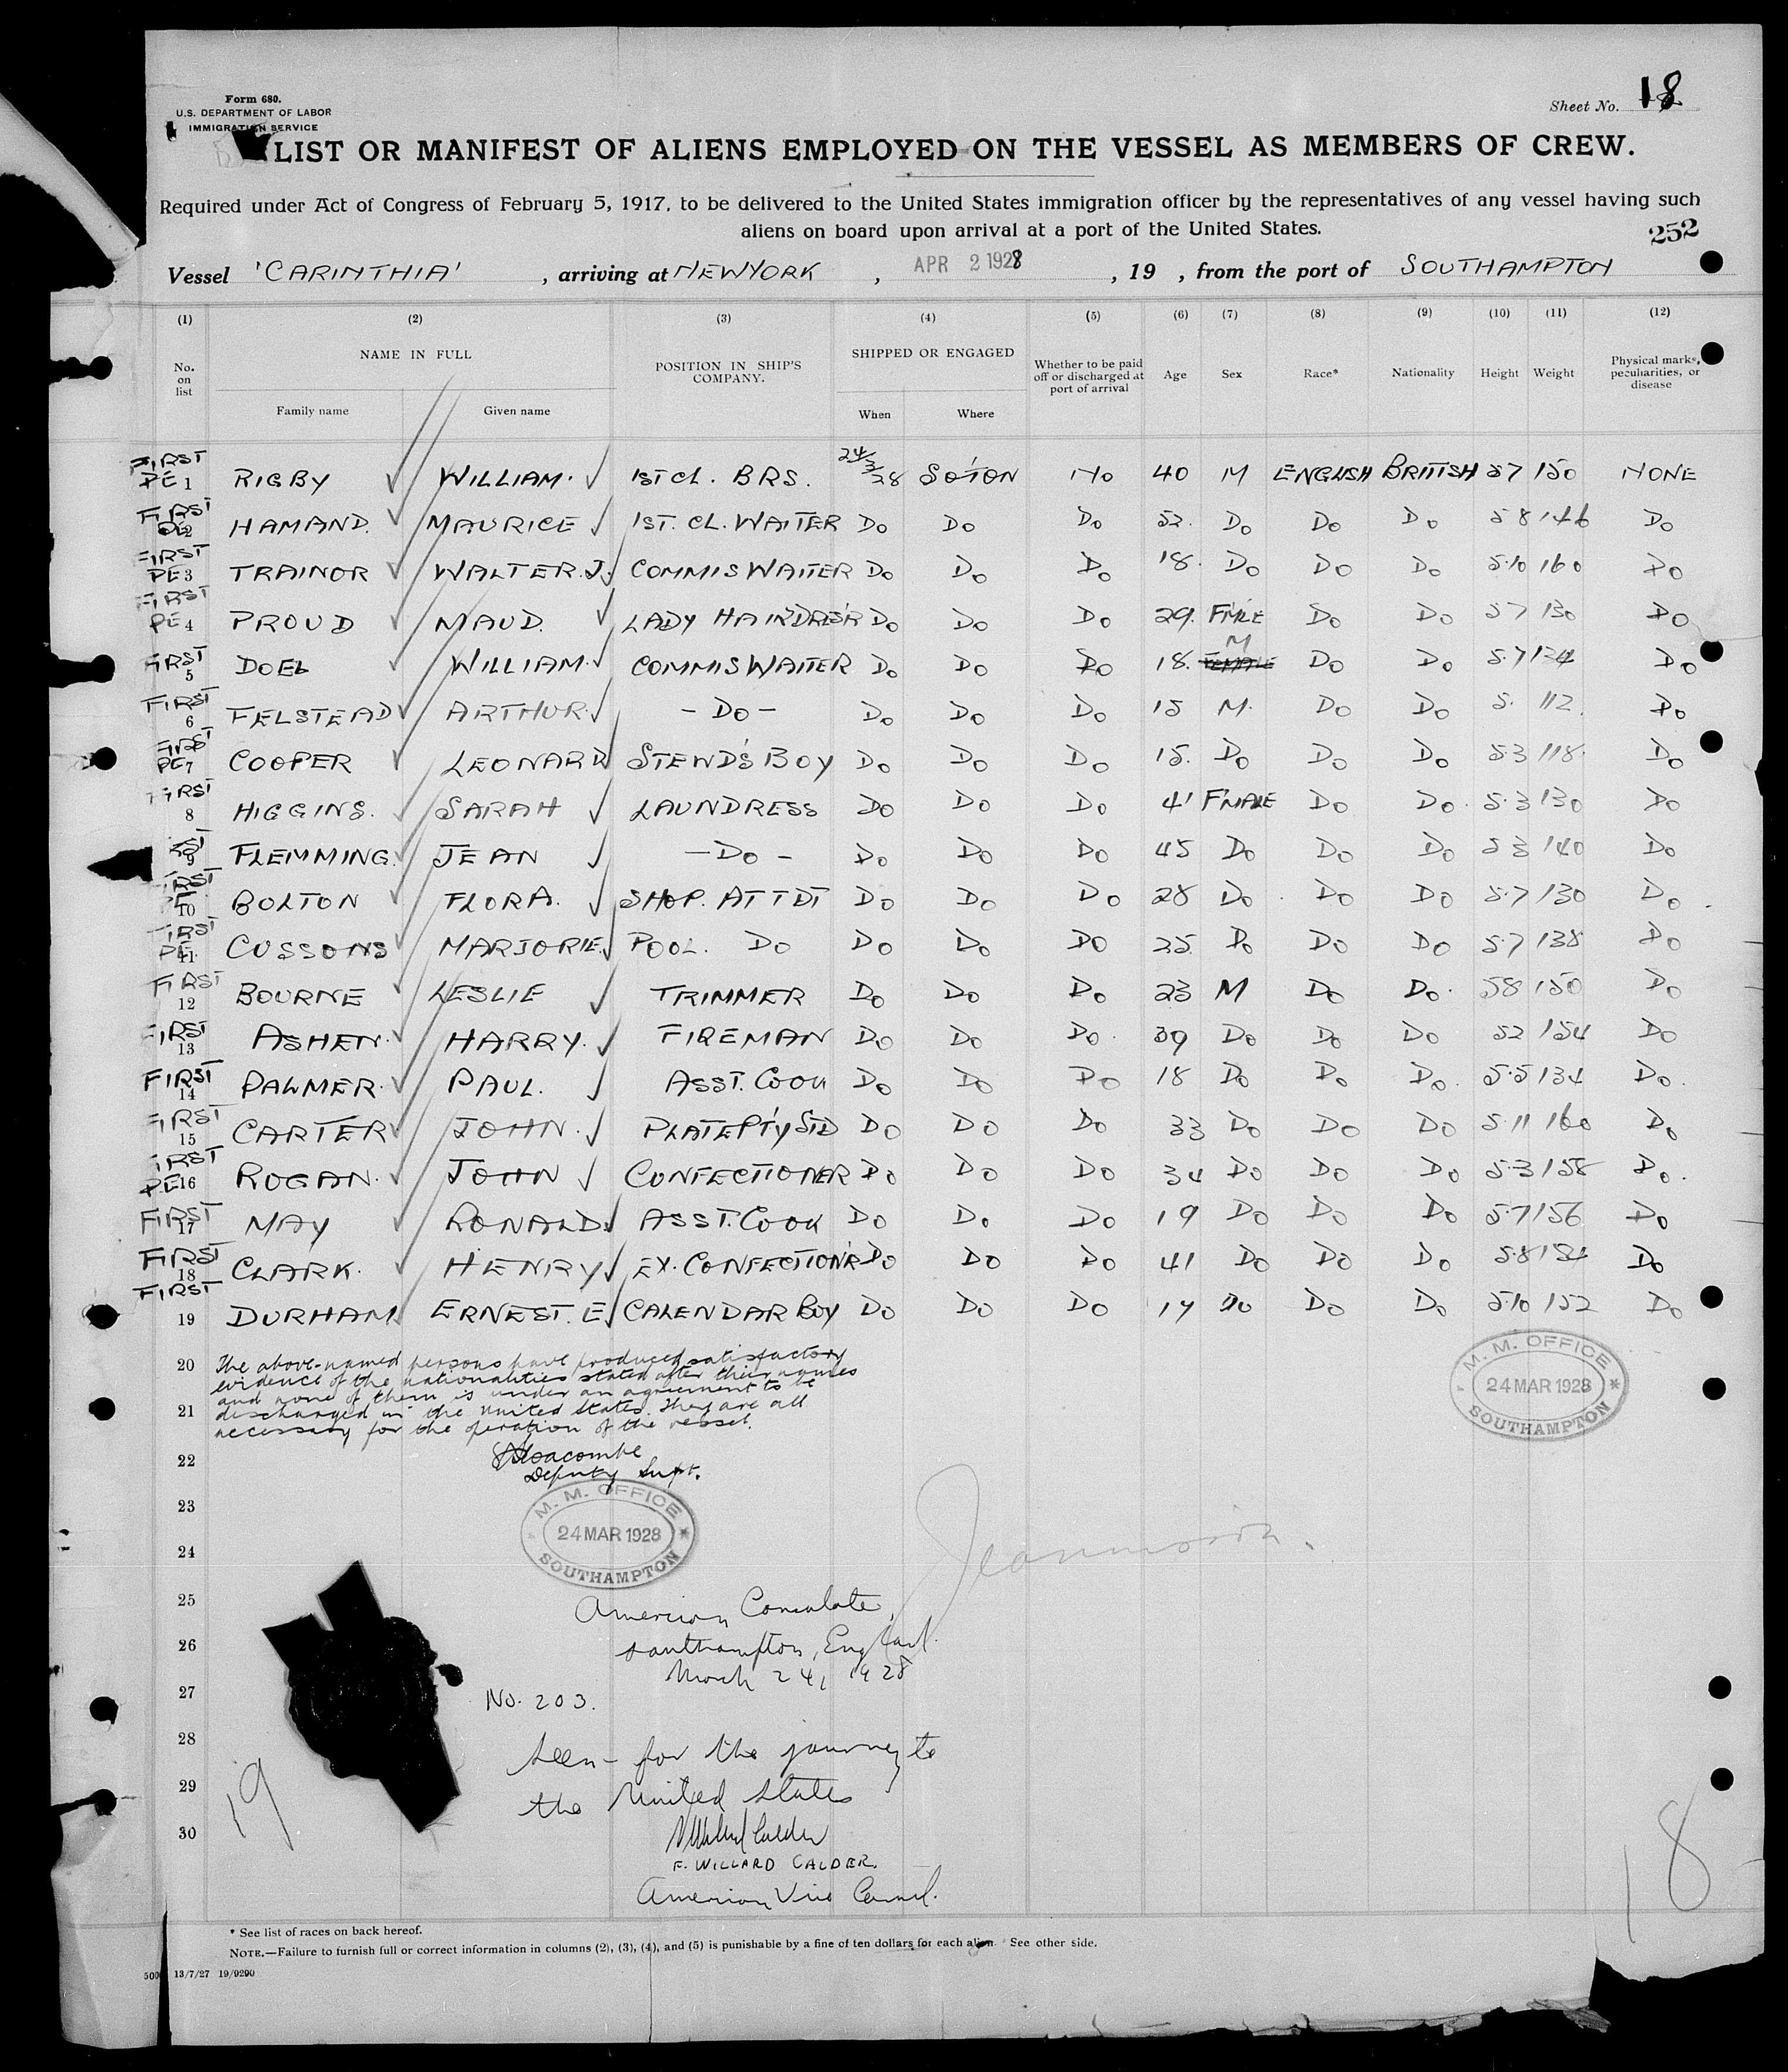 Form 680.
U.S. DEPARTMENT OF LABOR
IMMIGRATION SERVICE
Sheet No. 18
LIST OR MANIFEST OF ALIENS EMPLOYED ON THE VESSEL AS MEMBERS OF CREW.
Required under Act of Congress of February 5, 1917, to be delivered to the United States immigration officer by the representatives of any vessel having such
aliens on board upon arrival at a port of the United States.
252
Vessel 'CARINTHIA' , arriving at NEWYORK , APR 2 1928 , 19 , from the port of SOUTHAMPTON
(1) (2) (3) (4) (5) (6) (7) (8) (9) (10) (11) (12)
No. on list NAME IN FULL Family name Given name POSITION IN SHIP'S COMPANY. SHIPPED OR ENGAGED When Where Whether to be paid off or discharged at port of arrival Age Sex Race* Nationality Height Weight Physical marks, peculiarities, or disease
FIRST PE 1 RIGBY WILLIAM. 1ST CL. B.R.S. 24/3/28 SO'TON No 40 M ENGLISH BRITISH 57 150 NONE
FIRST 2 HAMAND. MAURICE 1ST. CL. WAITER Do Do Do 52. Do Do Do 58 146 Do
FIRST PE 3 TRAINOR WALTER.J. COMMIS WAITER Do Do Do 18. Do Do Do 5.10 160 Do
FIRST PE 4 PROUD MAUD. LADY HAIRDRES'R Do Do Do 29. F'MLE Do Do 57 130 Do
FIRST 5 DOEL WILLIAM. COMMIS WAITER Do Do Do 18. M FEMALE Do Do 5.7 134 Do
FIRST 6 FELSTEAD ARTHUR. - Do - Do Do Do 15 M. Do Do 5. 112. Do
FIRST PE 7 COOPER LEONARD STEWD'S BOY Do Do Do 15. Do Do Do 5.3 118. Do
FIRST 8 HIGGINS. SARAH LAUNDRESS Do Do Do 41 F'MALE Do Do 5.3 130 Do
9 FLEMMING. JEAN - Do - Do Do Do 45 Do Do Do 53 140 Do
FIRST PE 10 BOLTON FLORA. SHOP. ATTDT Do Do Do 28 Do Do Do 5.7 130 Do
FIRST PE 11 CUSSONS MARJORIE. POOL. Do Do Do Do 25. Do Do Do 5.7 138 Do
FIRST 12 BOURNE LESLIE TRIMMER Do Do Do 23 M Do Do 58 150 Do
FIRST 13 ASHEN. HARRY. FIREMAN Do Do Do 39 Do Do Do 52 154 Do
FIRST 14 PALMER. PAUL. ASST. COOK Do Do Do 18 Do Do Do 5.5 134 Do
FIRST 15 CARTER JOHN. PLATEP'TY STD Do Do Do 33 Do Do Do 5.11 160 Do
FIRST PE 16 ROGAN. JOHN CONFECTIONER Do Do Do 34 Do Do Do 5.3 158 Do
FIRST 17 MAY RONALD. ASST. COOK Do Do Do 19 Do Do Do 5.7 156 Do
FIRST 18 CLARK. HENRY EX. CONFECTION'R Do Do Do 41 Do Do Do 5.8 Do
FIRST 19 DURHAM ERNEST. E CALENDAR BOY Do Do Do 17 Do Do Do 5.10 152 Do
20 The above-named persons have produced satisfactory
evidence of the nationalities stated after their names
and none of them is under an agreement to be
21 discharged in the United States. They are all
necessary for the operation of the vessel.
M. M. OFFICE
24 MAR 1928
SOUTHAMPTON
22
Deputy Supt.
23
M. M. OFFICE
24 MAR 1928
SOUTHAMPTON
24
25 American Consulate,
26 Southampton, England.
March 24, 1928
27 No. 203.
28 Seen - for the journey to
29 the United States
30
F. WILLARD CALDER.
American Vice Consul.
19
18
* See list of races on back hereof.
NOTE.—Failure to furnish full or correct information in columns (2), (3), (4), and (5) is punishable by a fine of ten dollars for each alien. See other side.
13/7/27 19/9290